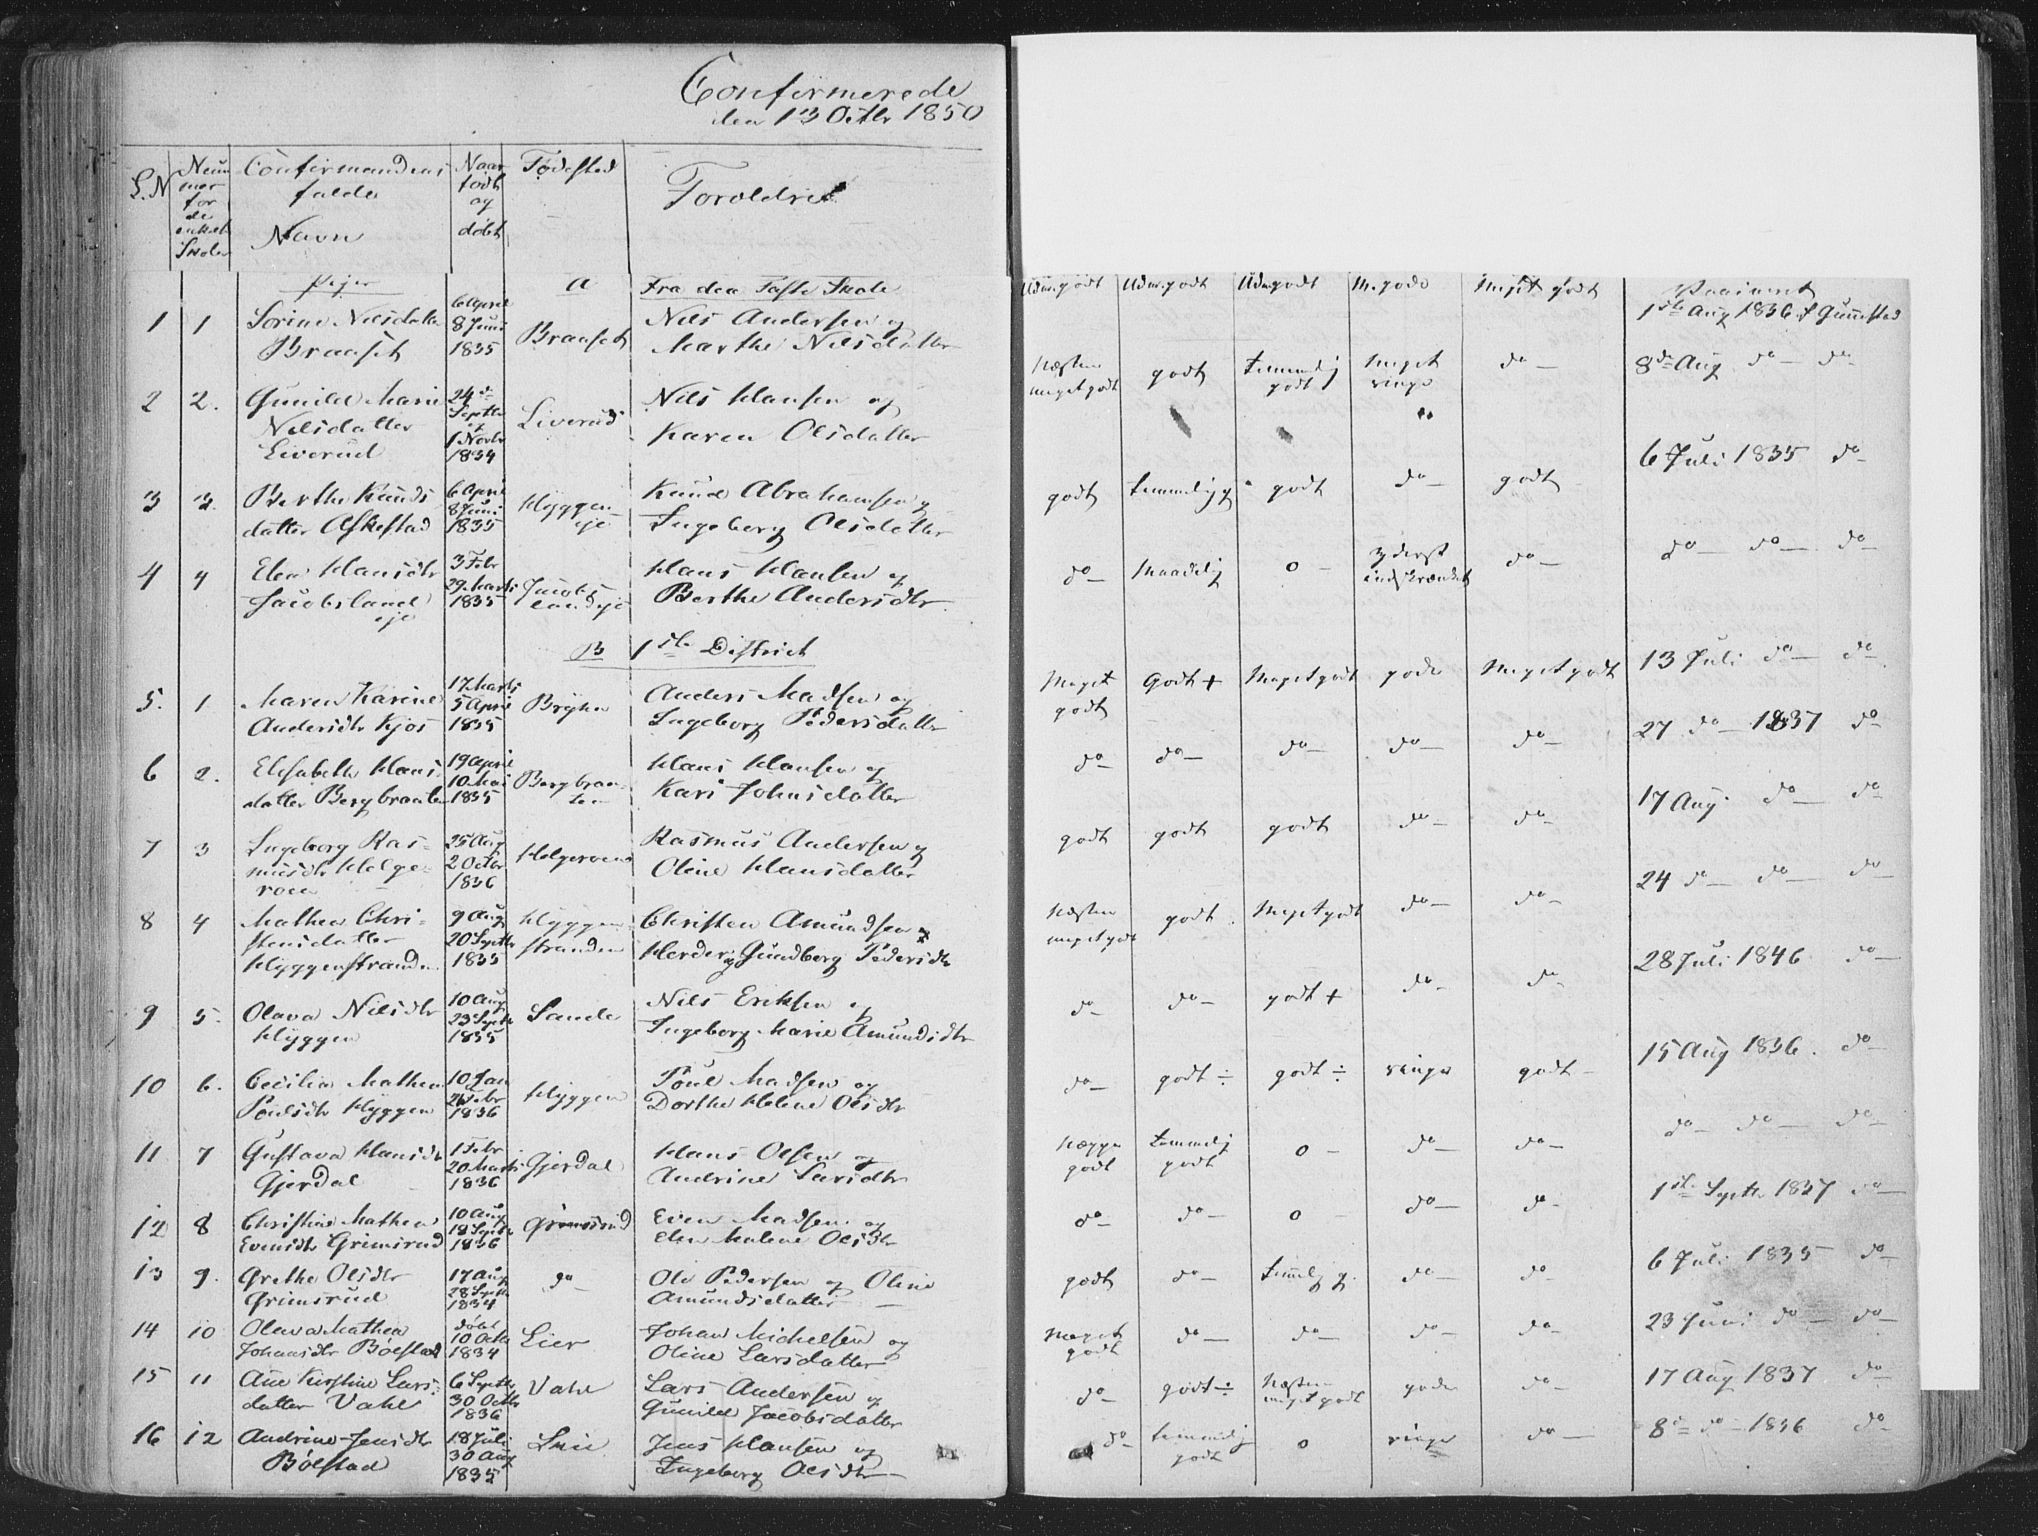 Confirmerede
den 13 Octbr 1850
L.N
Num
mer
for
de
enkelte
Skoler
Confirmandens
fulde
Navn
Naar
født
og
døbt
Fødested
Forældre
Piger
A
Fra den Faste Skole
1 1 Sorine Nilsdatter Braaset 6 April 8 Juni 1835 Braaset Nils Andersen og Marthe Nilsdatter Udm. godt Udm. godt Udm godt M. gode Meget godt 1ste Aug 1836 f Gunnestad
2 2. Gunild Marie Nilsdatter Liverud 24de Septbr og 1 Novbr 1834 Liverud Nils Hansen og Karen Olsdatter Næsten meget godt godt temmelig godt Meget ringe do 8de Aug do do
3 3. Berthe Knuds datter Askestad 6 April 8 Juni 1835 Hyggen eje Knud Abrahamsen og Ingeborg Olsdatter godt temmelig g godt do godt 6 Juli 1835 do
4 4 Elen Hansdtr Jacobsland eje 3 Febr 29 Marts 1835 Jacobs landseje Hans Hansen og Berthe Andersdtr do Maadelig 0 yderst indskrænket do do do do
B 1ste District
5. 1 Maren Karine Andersdtr Kjos 17 Marts 5 April 1835 Bryhn Anders Madsen og Ingeborg Pedersdatter Meget godt Godt + Meget godt gode Meget godt 13 Juli do do
6 2. Elisabeth Hans datter Bergbraaten 19 April 10 Mai 1835 Bergbraaten Hans Hansen og Kari Johnsdatter do do do do do 27 do 1837 do
7 3 Ingeborg Ras musdtr Helge roen 25 Aug 2 Octbr 1836 Helgeroen Rasmus Andersen og Oline Hansdatter godt godt godt do do 17 Aug. do do
8 4 Mathea Chri stensdatter Hyggenstranden 9 Aug 20 Septbr 1835 Hyggen stranden Christen Amundsen Herder og Gundberg Pedersdtr Næsten meget godt godt. Meget godt do do 24 do do do
9 5. Olava Nilsdtr Hyggen 10 Aug 23 Septbr 1835 Sande Nils Eriksen og Ingeborg Marie Amundsdtr do do godt + do do 28 Juli 1846 do
10 6. Cecilia Mathea Poulsdtr Hyggen 10 Jan Febr 1836 Hyggen Poul Madsen og Dorthe Helene Olsdtr do godt ÷ godt ÷ ringe godt 15 Aug 1836. do
11 7 Gustava Hansdtr Gjerdal 1 Febr 20 Marts 1836 Gjerdal Hans Olsen og Andrine Larsdtr Næppe godt temmelig godt 0 do do do do do
12 8 Christine Mathea Evensdtr Grimsrud 10 Aug 18 Septbr 1836 Grimsrud Even Madsen og Elen Malene Olsdtr do do 0 do do 1ste Septbr 1837 do
13 9. Grethe Olsdtr Grimsrud 17 Aug 28 Septbr 1834 do Ole Pedersen og Oline Amundsdatter godt do temlig g. do do 6 Juli 1835 do
14 10 Olava Mathea Johansdtr Bølstad døbt 10 Octbr 1834 Lier Johan Michelsen og Oline Larsdatter Meget godt do do do do 23 Juni do do
15 11 Ane Kirstine Lars datter Vahl 6 Septbr 30 Octbr 1836 Vahl Lars Andersen og Gunild Jacobsdatter do godt ÷ Næsten meget godt gode do 17 Aug 1837 do
16 12 Andrine Jensdtr Bølstad 18 Juli 30 Aug 1835 Jens Hansen og Ingeborg Olsdtr do temmelig godt 0 ringe do 8de do 1836 do